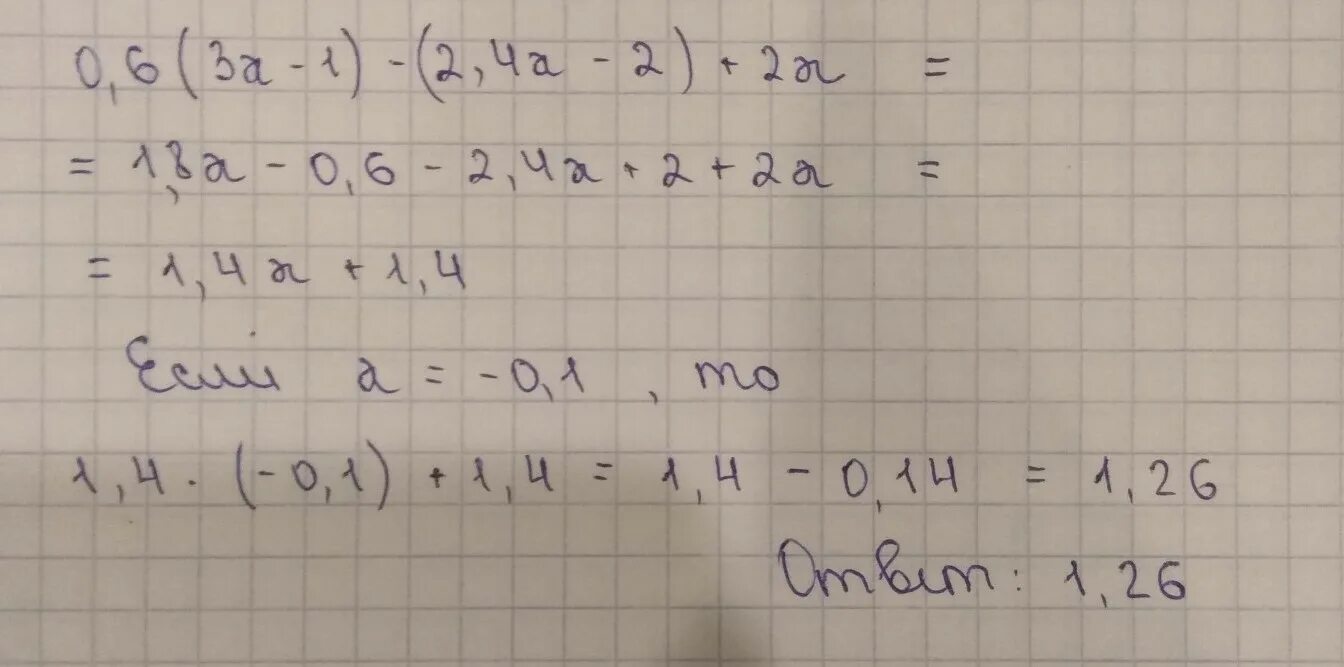 0,6(3a - 1) - (2,4a - 2) + 2a =
= 1,8a - 0,6 - 2,4a + 2 + 2a =
= 1,4a + 1,4
Если a = -0,1 , то
1,4 · (-0,1) + 1,4 = 1,4 - 0,14 = 1,26
Ответ: 1,26